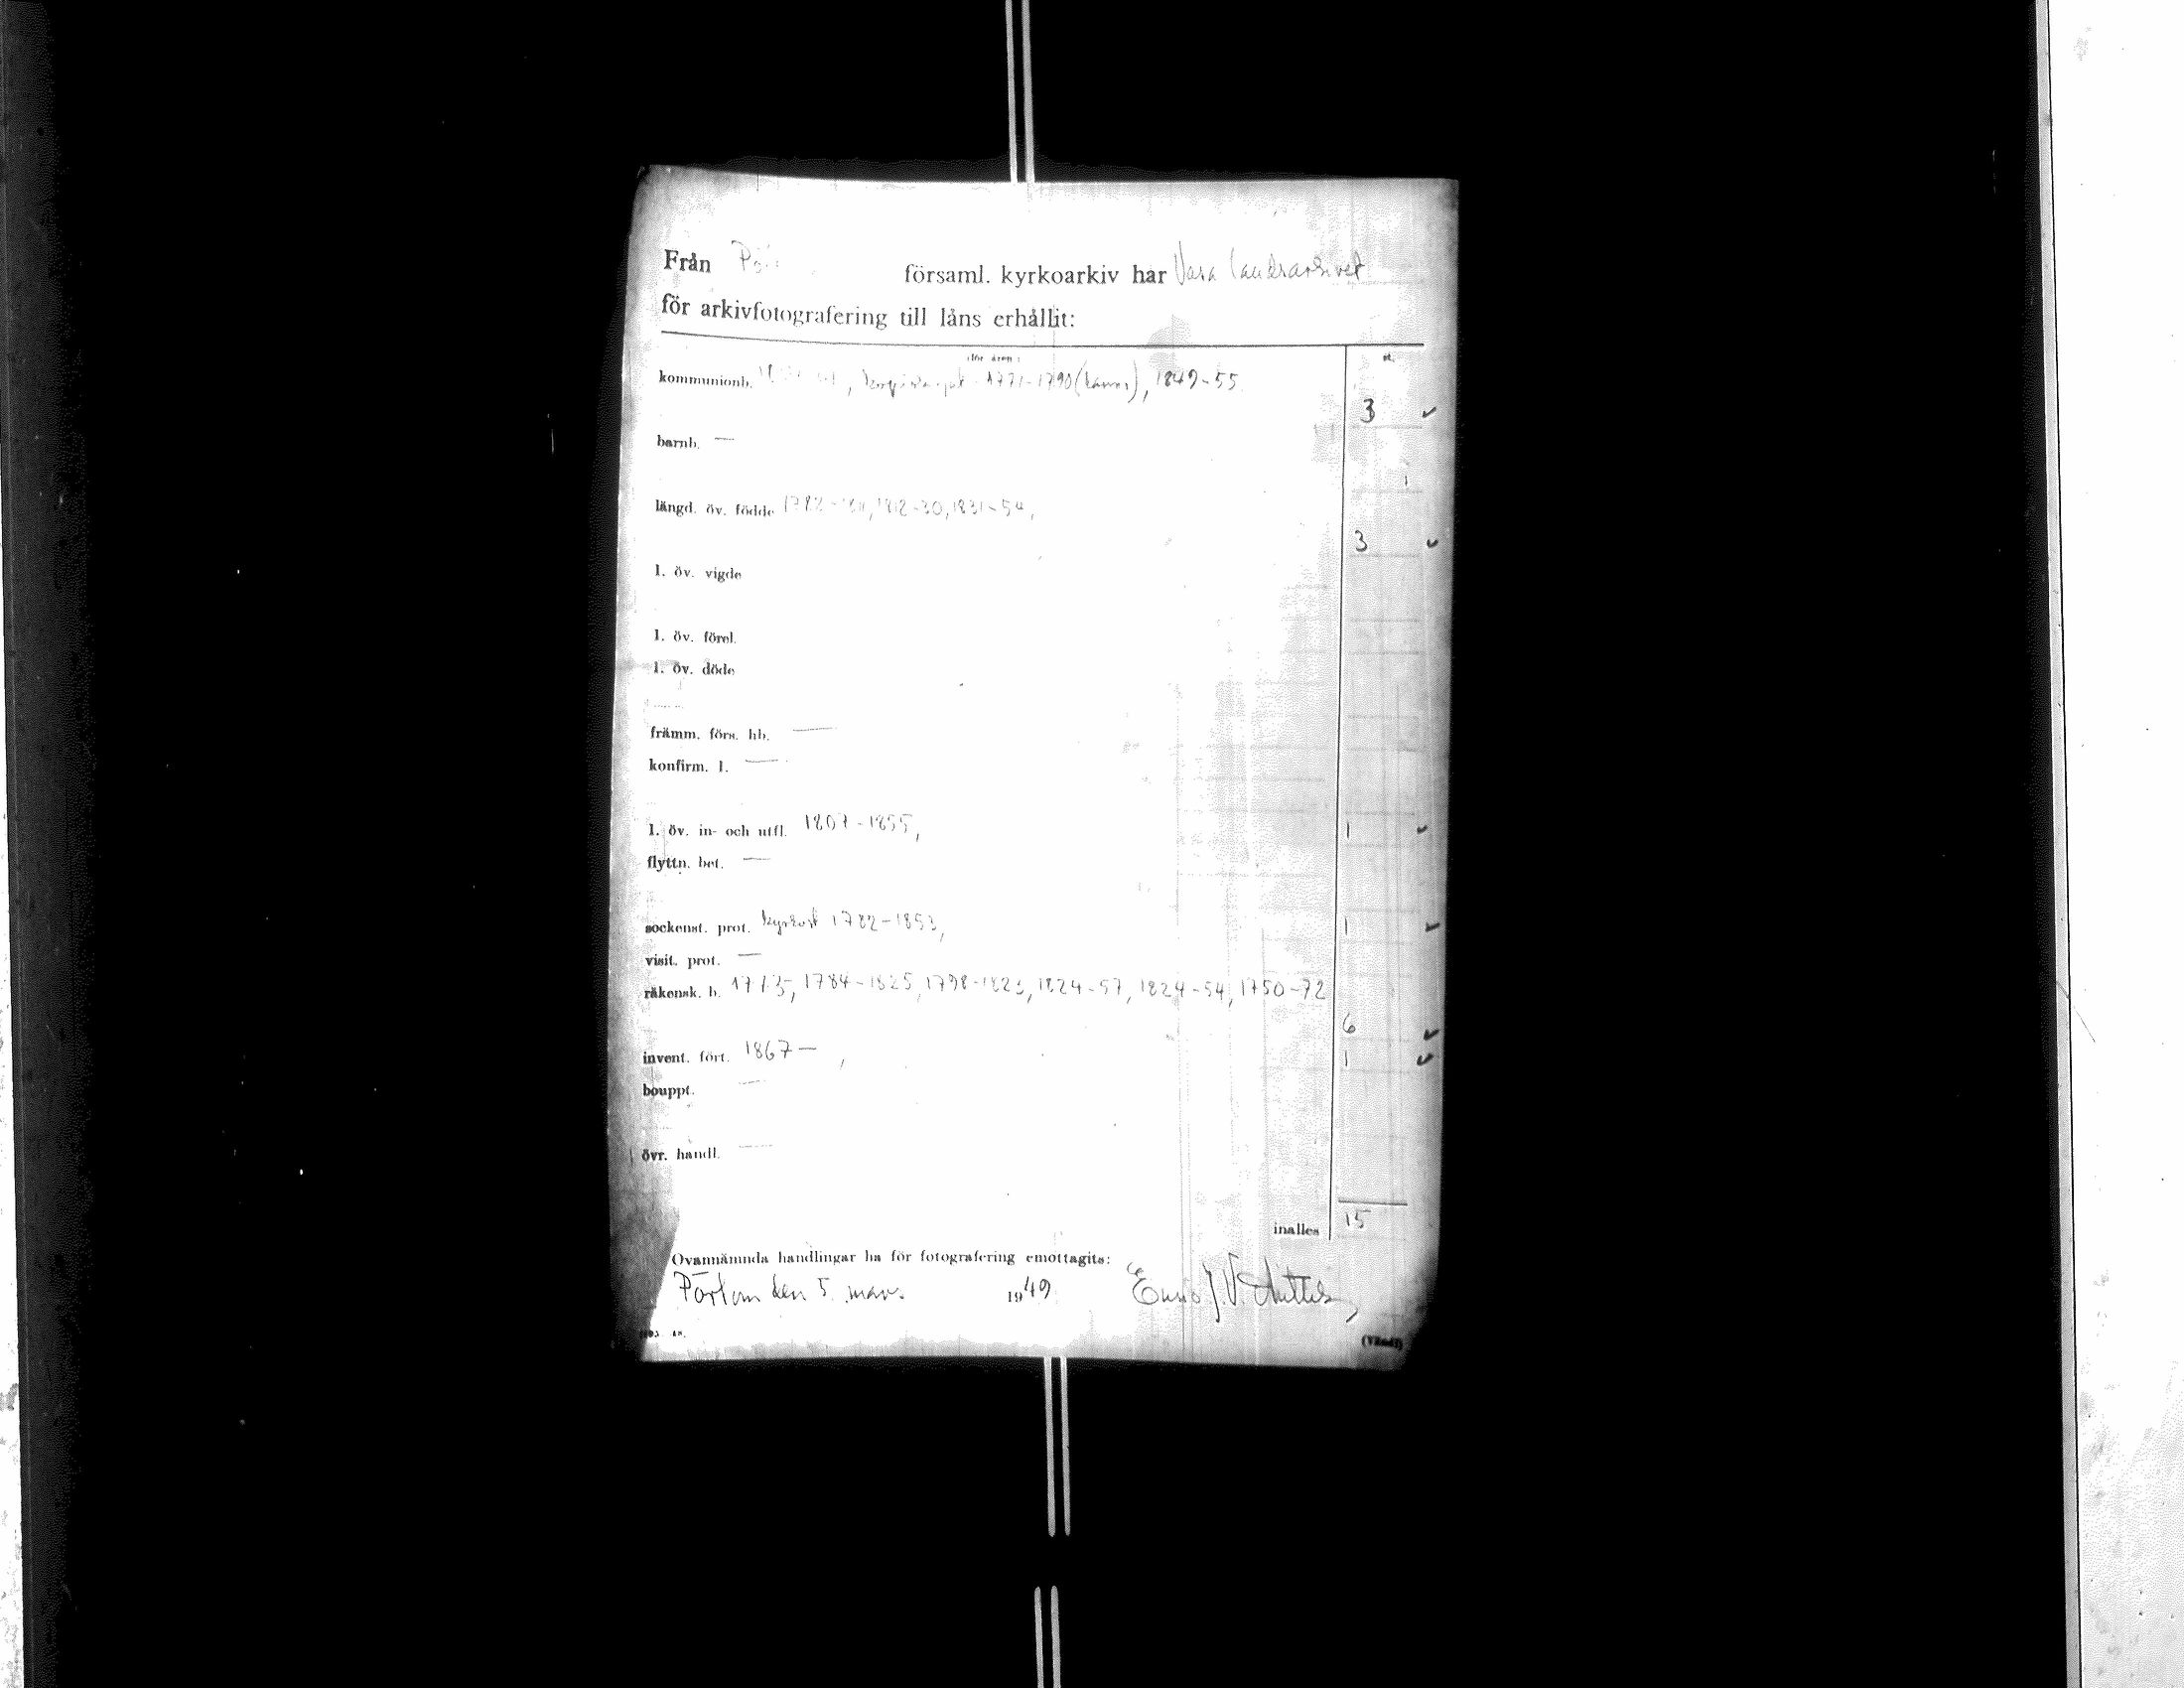 Från församl. kyrkoarkiv har Vasa landsarkivet
för arkivfotografering till låns erhållit:
(för åren) st.
kommunionb. 1771-1790 1849-55
3
barnb. —
längd. öv. födde 1812-30, 1831-54,
3
l. öv. vigde
l. öv. förel.
l. öv. döde
främm. förs. hb. —
konfirm. l. —
l. öv. in- och utfl. 1807-1855, 1
flyttn. bet. —
sockenst. prot. kyrkost 1782-1853, 1
visit. prot. —
räkensk. b. 1784-1825, 1798-1823, 1824-57, 1824-54, 1750-72
6
invent. fört. 1867 — , 1
bouppt. —
övr. handl. —
inalles 15
Ovannämnda handlingar ha för fotografering emottagits:
Pörtom den 5 mars 1949
(Vänd!)